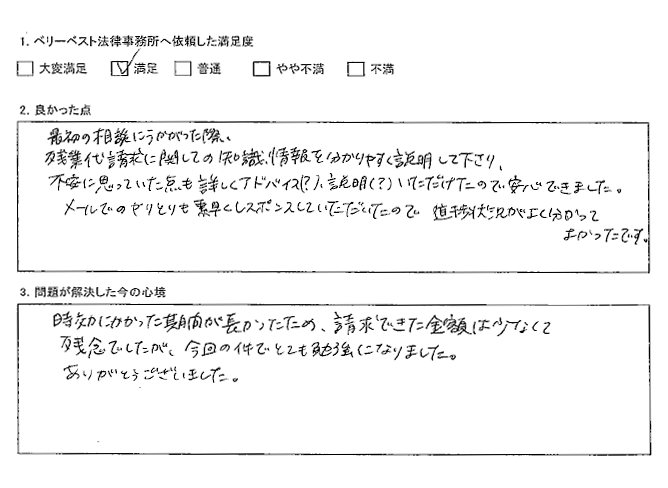 1. ベリーベスト法律事務所へ依頼した満足度
□ 大変満足 ☑ 満足 □ 普通 □ やや不満 □ 不満
2. 良かった点
最初の相談にうかがった際、
残業代請求に関しての知識、情報を分かりやすく説明して下さり、
不安に思っていた点も詳しくアドバイス(?)、説明(?)いただけたので安心できました。
メールでのやりとりも素早くレスポンスしていただいたので 進捗状況がよく分かって
よかったです。
3. 問題が解決した今の心境
時効にかかった期間が長かったため、請求できた金額は少なくて
残念でしたが、今回の件でとても勉強になりました。
ありがとうございました。